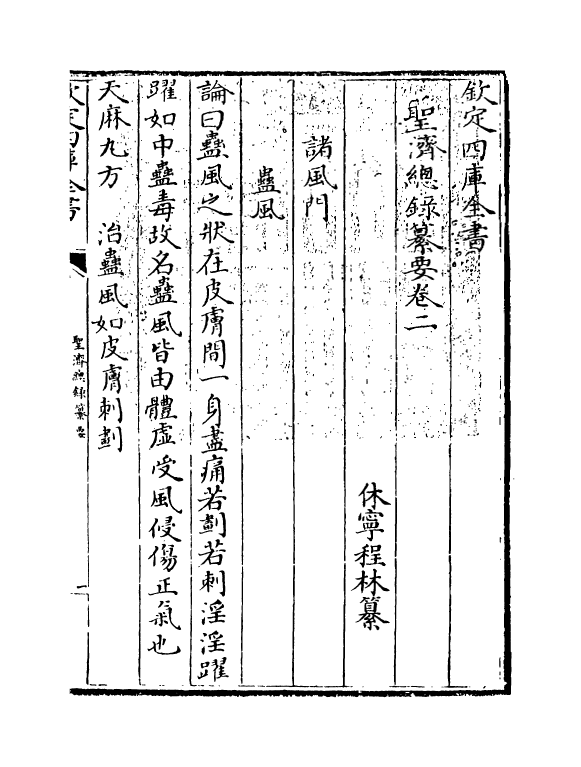 欽定四庫全書
聖濟總錄纂要卷二
休寧程林纂
諸風門
蠱風
論曰蠱風之狀在皮膚間一身盡痛若劃若刺淫淫躍
躍如中蠱毒故名蠱風皆由體虛受風侵傷正氣也
天麻九方　治蠱風如皮膚刺劃
聖濟總錄纂要